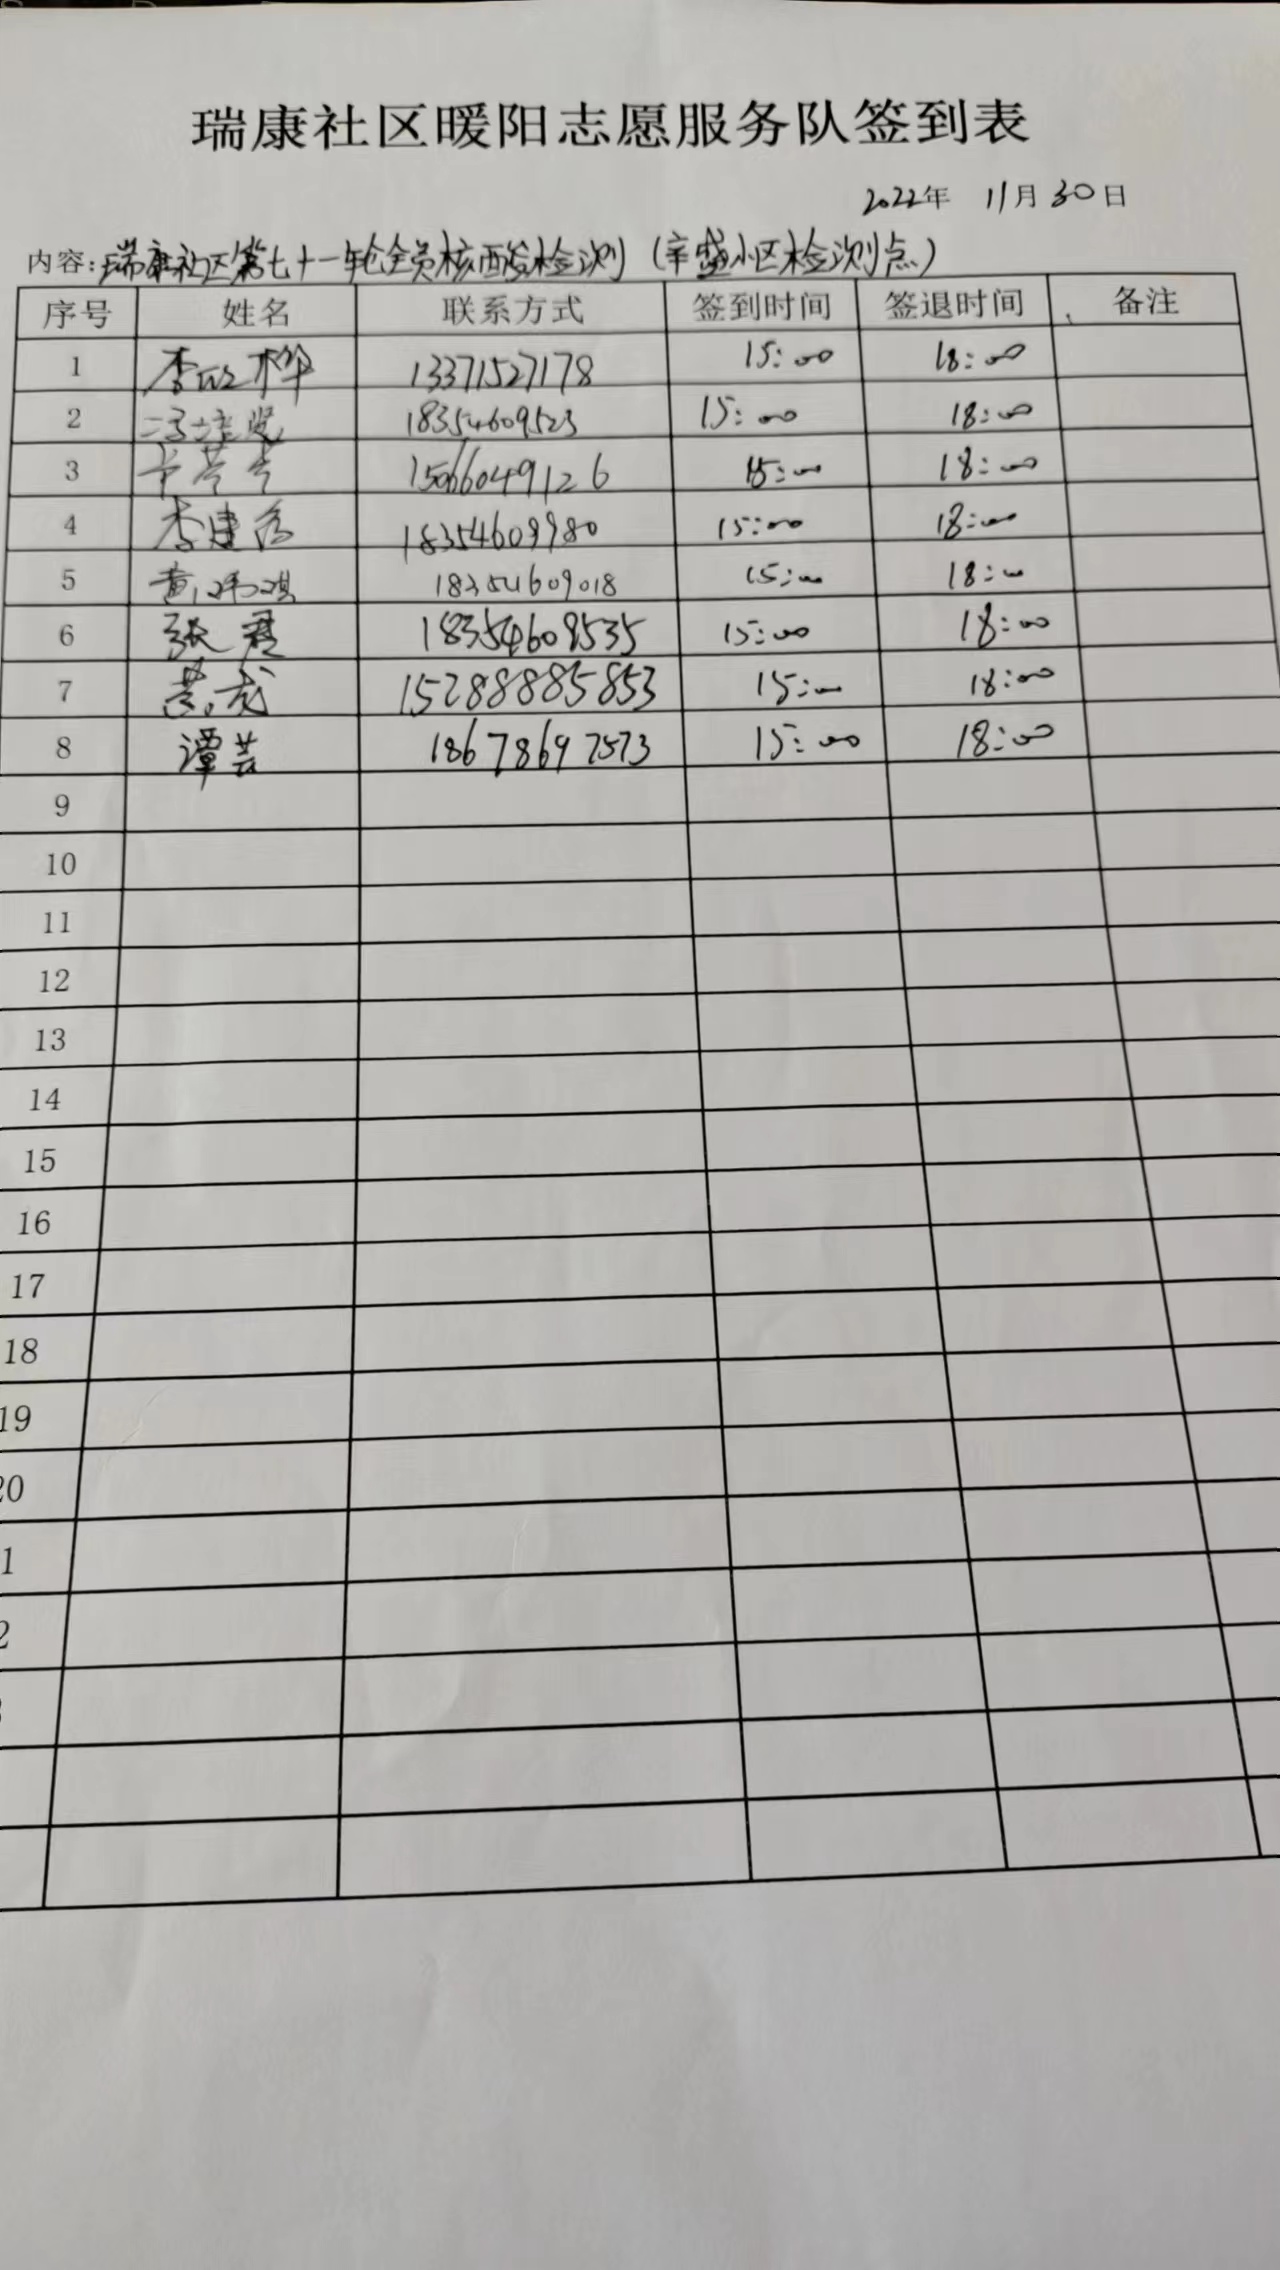 瑞康社区暖阳志愿服务队签到表
2022年 11月30日
内容:瑞康社区第七十一轮全员核酸检测(辛盛小区检测点)
序号 姓名 联系方式 签到时间 签退时间 备注
1 李 桦 13371527178 15:00 18:00
2 冯 18354609523 15:00 18:00
3 15066049126 15:00 18:00
4 李建 18354609980 15:00 18:00
5 黄 琪 18354609018 15:00 18:00
6 张君 18354609535 15:00 18:00
7 龙 15288885853 15:00 18:00
8 谭芸 18678697573 15:00 18:00
9
10
11
12
13
14
15
16
17
18
19
20
1
2